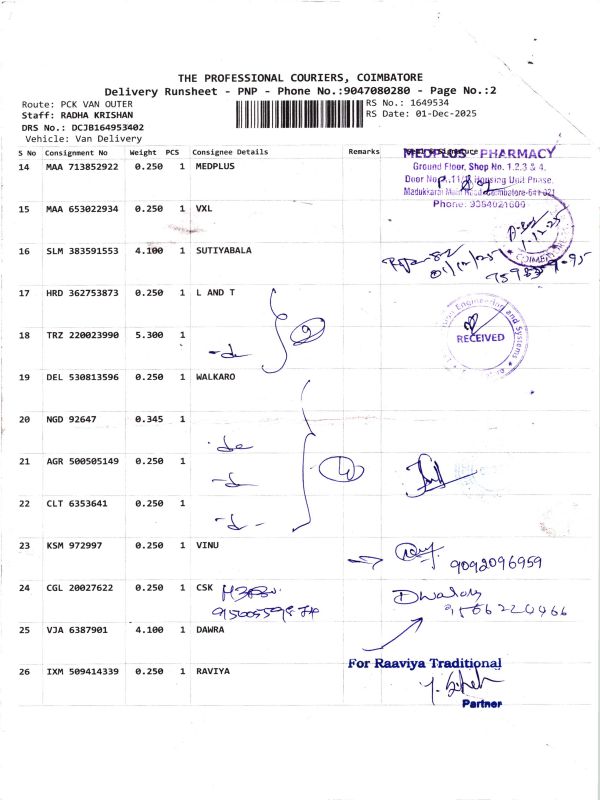 THE PROFESSIONAL COURIERS, COIMBATORE
Delivery Runsheet - PNP - Phone No.:9047080280 - Page No.:2
Route: PCK VAN OUTER
RS No.: 1649534
Staff: RADHA KRISHAN
RS Date: 01-Dec-2025
DRS No.: DCJB164953402
Vehicle: Van Delivery
S No Consignment No Weight PCS Consignee Details Remarks
14 MAA 713852922 0.250 1 MEDPLUS
MEDPLUS PHARMACY
Ground Floor, Shop No. 1,2,3 & 4,
Door No. 11/ Housing Unit Phase,
Madukkarai Main Road Coimbatore-641 021
Phone:
15 MAA 653022934 0.250 1 VXL
1-12-25
16 SLM 383591553 4.100 1 SUTIYABALA
01/12/25
17 HRD 362753873 0.250 1 L AND T
18 TRZ 220023990 5.300 1
-do
2
Engineering and Systems
RECEIVED
19 DEL 530813596 0.250 1 WALKARO
20 NGD 92647 0.345 1
-do
21 AGR 500505149 0.250 1
-do
4
22 CLT 6353641 0.250 1
-do-
23 KSM 972997 0.250 1 VINU
9092096959
24 CGL 20027622 0.250 1 CSK
25 VJA 6387901 4.100 1 DAWRA
26 IXM 509414339 0.250 1 RAVIYA
For Raaviya Traditional
Partner